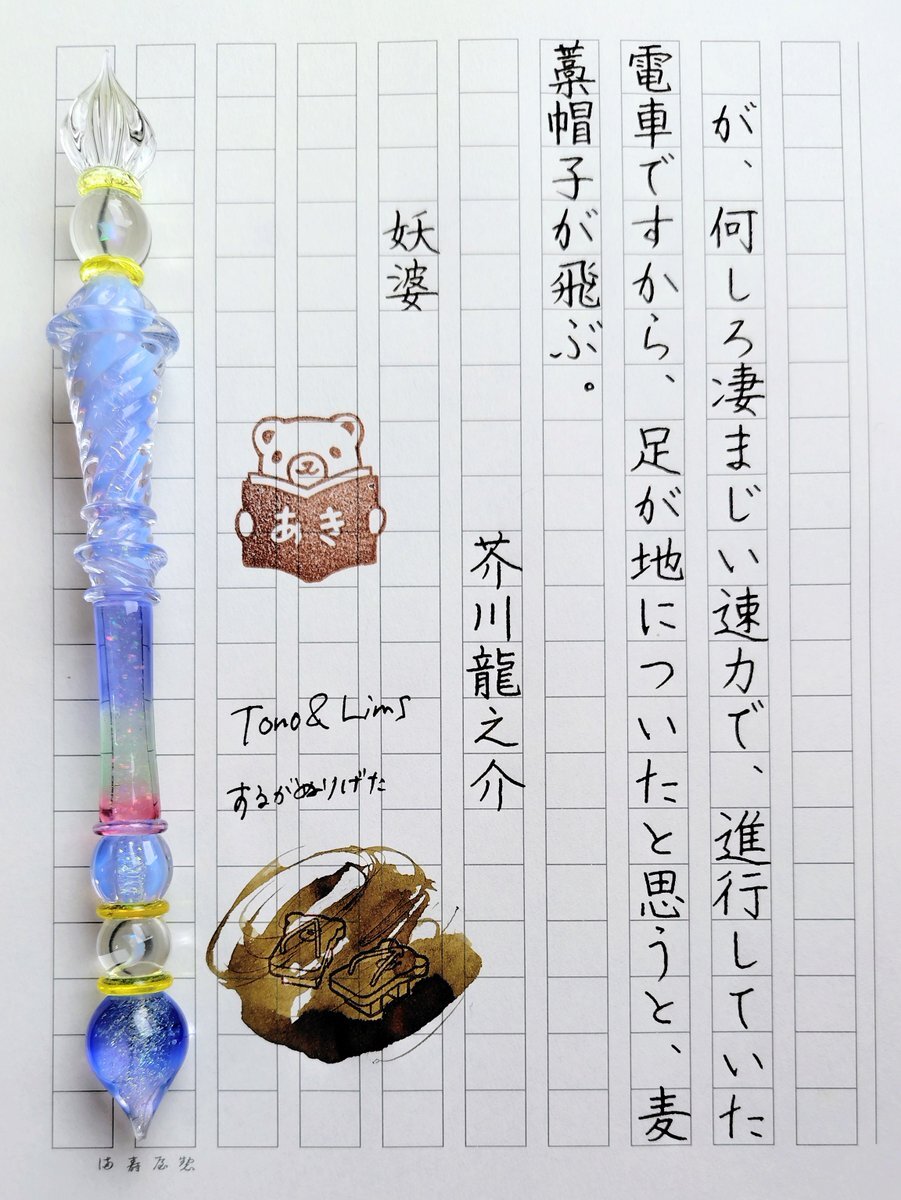 が、何しろ凄まじい速力で、進行していた
電車ですから、足が地についたと思うと、麦
藁帽子が飛ぶ。
芥川龍之介
妖婆
あき
Tono & Lims
するがぬりげた